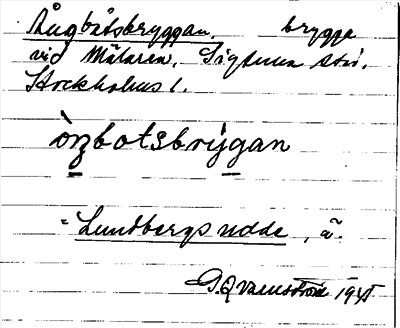 Ångbåtsbryggan, brygga
vid Mälaren, Sigtuna stad.
Stockholms l.
ò̀nbotsbrýgan
= Lundbergs udde, ã.
G. Qvarnström 1941